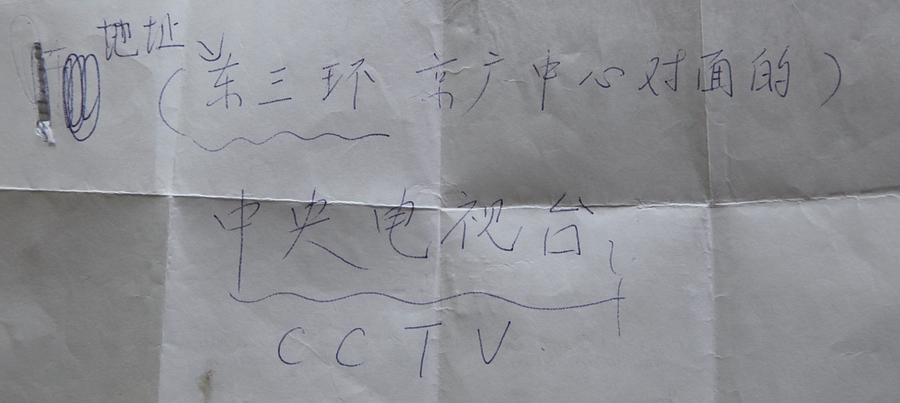 地址
(东三环 京广中心对面的)
中央电视台
CCTV